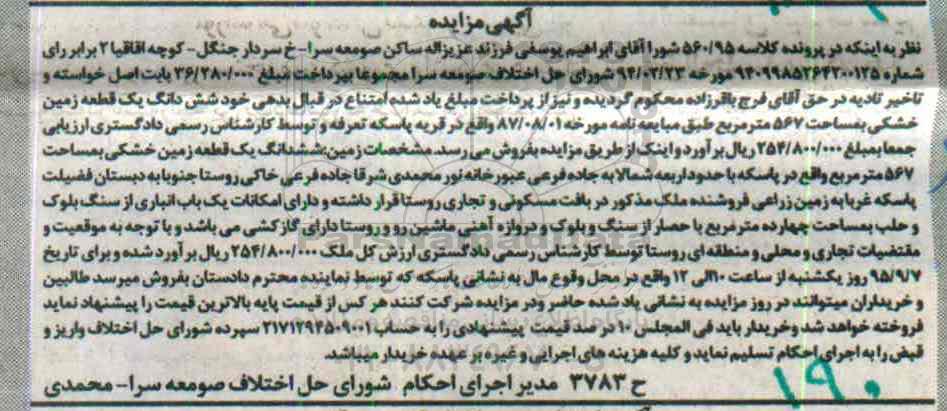 آگهی مزایده
نظر به اینکه در پرونده کلاسه ۵۶۰/۹۵ شورا آقای ابراهیم یوسفی فرزند عزیزاله ساکن صومعه سرا-خ سردار جنگل-کوچه اقاقیا ۲ برابر رای
شماره ۹۴۰۹۹۸۵۲۶۴۲۰۰۱۲۵ مورخه ۹۴/۰۲/۲۳ شورای حل اختلاف صومعه سرا مجموعا بپرداخت مبلغ ۳۶/۲۸۰/۰۰۰ بابت اصل خواسته و
تاخیر تادیه در حق آقای فرج باقرزاده محکوم گردیده و نیز از پرداخت مبلغ یاد شده امتناع در قبال بدهی خود شش دانگ یک قطعه زمین
خشکی بمساحت ۵۶۷ متر مربع طبق مبایعه نامه مورخه ۸۷/۰۸/۰۱ واقع در قریه پاسکه تعرفه و توسط کارشناس رسمی دادگستری ارزیابی
جمعا بمبلغ ۲۵۴/۸۰۰/۰۰۰ ریال برآورد و اینک از طریق مزایده بفروش می رسد. مشخصات زمین: ششدانگ یک قطعه زمین خشکی بمساحت
۵۶۷ متر مربع واقع در پاسکه با حدود اربعه شمالا به جاده فرعی عبور خانه نور محمدی شرقا جاده فرعی خاکی روستا جنوبا به دبستان فضیلت
پاسکه غربا به زمین زراعی فروشنده ملک مذکور در بافت مسکونی و تجاری روستا قرار داشته و دارای امکانات یک باب انباری از سنگ بلوک
و حلب بمساحت چهارده متر مربع با حصار از سنگ و بلوک و دروازه آهنی ماشین رو و روستا دارای گازکشی می باشد و با توجه به موقعیت و
مقتضیات تجاری و محلی و منطقه ای روستا توسط کارشناس رسمی دادگستری ارزش کل ملک ۲۵۴/۸۰۰/۰۰۰ ریال برآورد شده و برای تاریخ
۹۵/۹/۷ روز یکشنبه از ساعت ۱۰الی ۱۲ واقع در محل وقوع مال به نشانی پاسکه که توسط نماینده محترم دادستان بفروش میرسد طالبین
و خریداران میتوانند در روز مزایده به نشانی یاد شده حاضر ودر مزایده شرکت کنند هر کس از قیمت پایه بالاترین قیمت را پیشنهاد نماید
فروخته خواهد شد وخریدار باید فی المجلس ۱۰ در صد قیمت پیشنهادی را به حساب ۲۱۷۱۲۹۴۵۰۹۰۰۱ سپرده شورای حل اختلاف واریز و
قبض را به اجرای احکام تسلیم نماید و کلیه هزینه های اجرایی و غیره بر عهده خریدار میباشد.
ح ۳۷۸۳ مدیر اجرای احکام شورای حل اختلاف صومعه سرا- محمدی